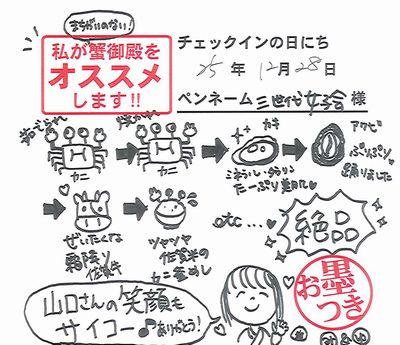 まちがいのない!
私が蟹御殿を
オススメ
します!!
チェックインの日にち
25年12月28日
ペンネーム 三世代女子会 様
茹でられ
カニ
焼かれ
カニ
カキ
ミネラル・タウリン
たーっぷり美味
アワビ
ぷりぷり
踊りました
ぜいたくな
霜降り
佐賀牛
ツヤツヤ
佐賀米の
カニ釜めし
etc...
絶品
山口さんの笑顔も
サイコー♪ありがとう!
お墨
つき